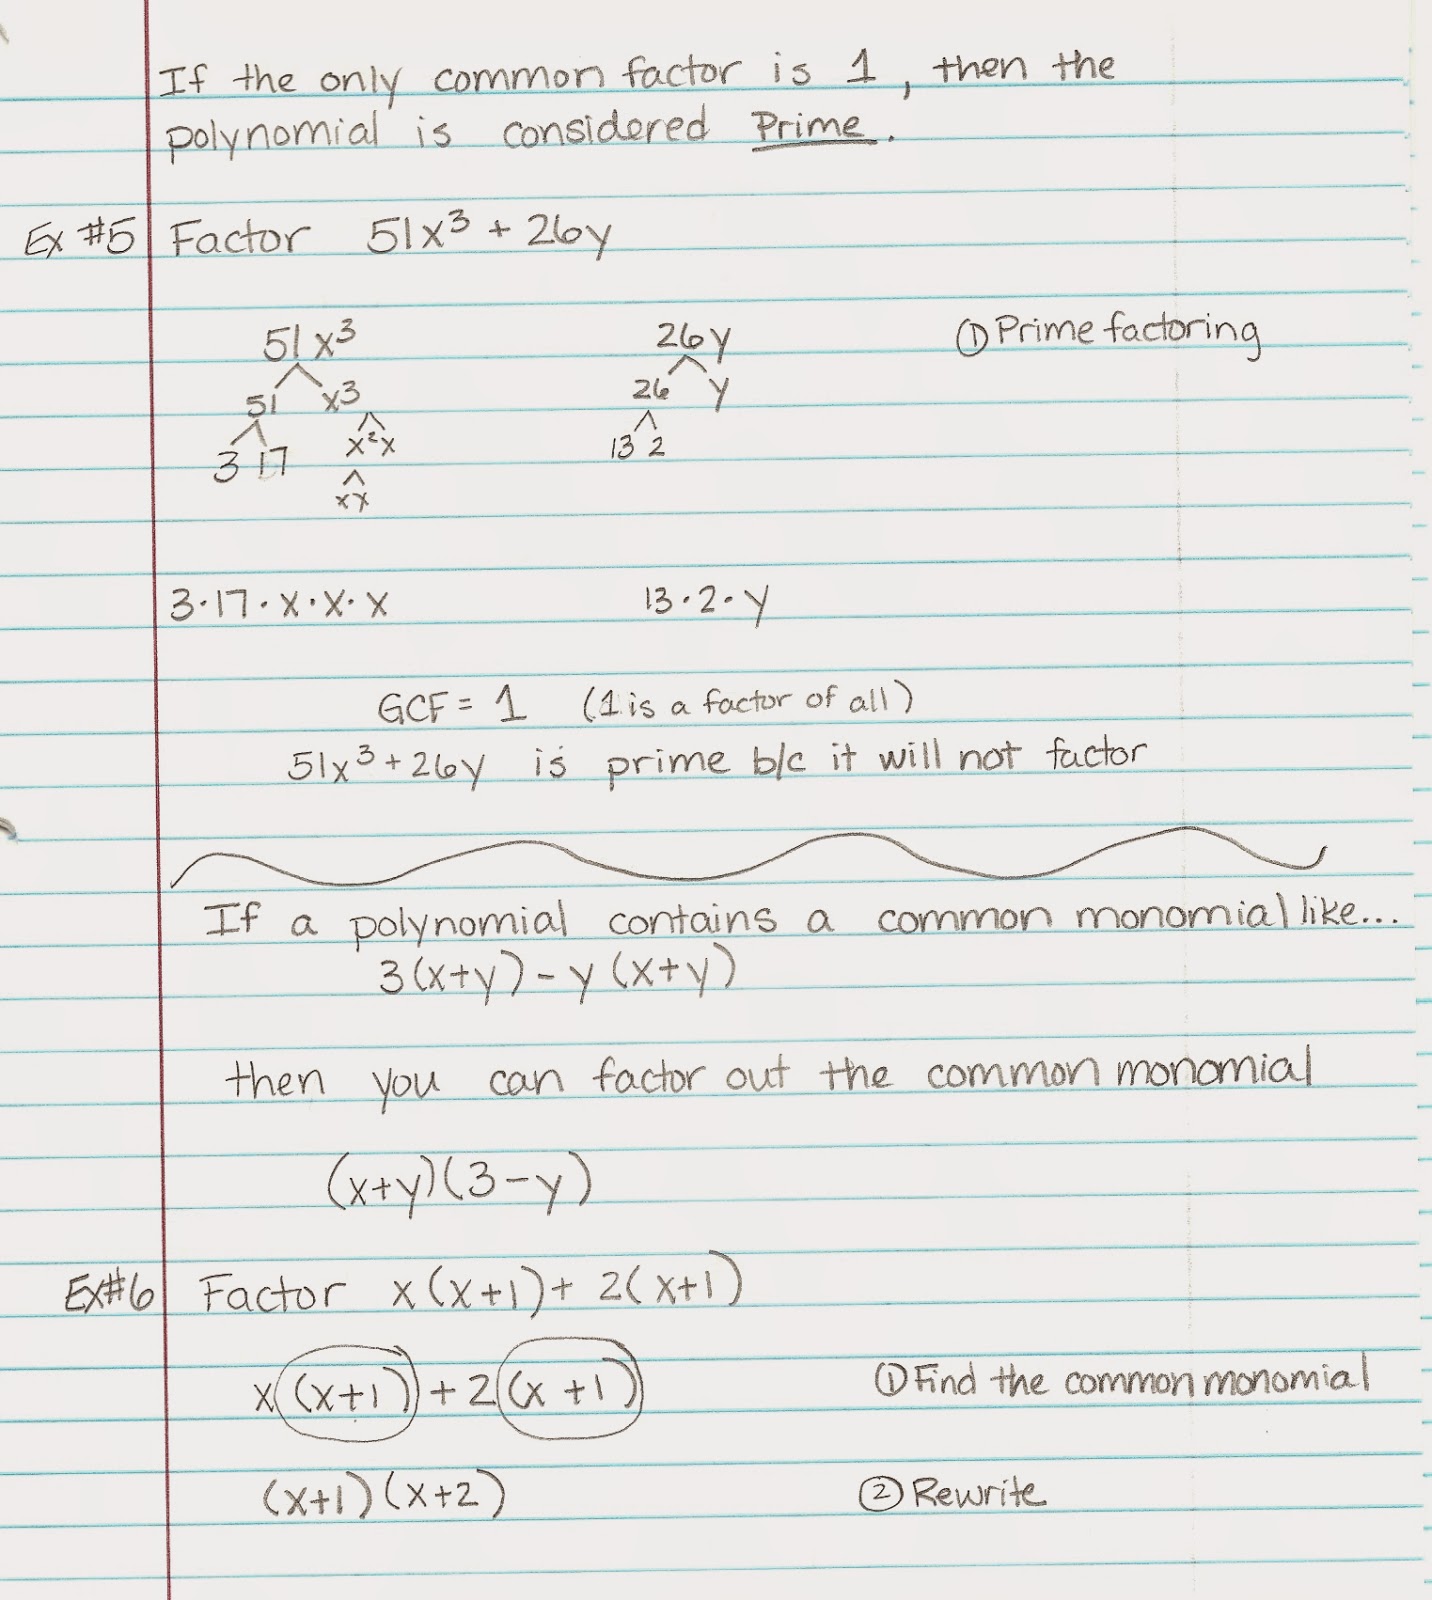 If the only common factor is 1, then the
polynomial is considered Prime.
Ex #5 Factor 51x³ + 26y
51x³ 26y ① Prime factoring
51 x³ 26 y
3 17 x² x 13 2
x x
3·17·x·x·x 13·2·y
GCF = 1 (1 is a factor of all)
51x³ + 26y is prime b/c it will not factor
If a polynomial contains a common monomial like...
3(x+y) - y(x+y)
then you can factor out the common monomial
(x+y)(3-y)
Ex#6 Factor x(x+1) + 2(x+1)
x(x+1) + 2(x+1) ① Find the common monomial
(x+1)(x+2) ② Rewrite